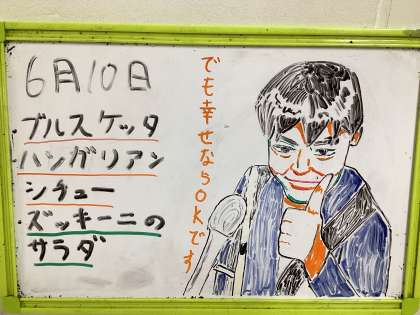 6月10日
ブルスケッタ
ハンガリアン
シチュー
ズッキーニの
サラダ
でも幸せならOKです